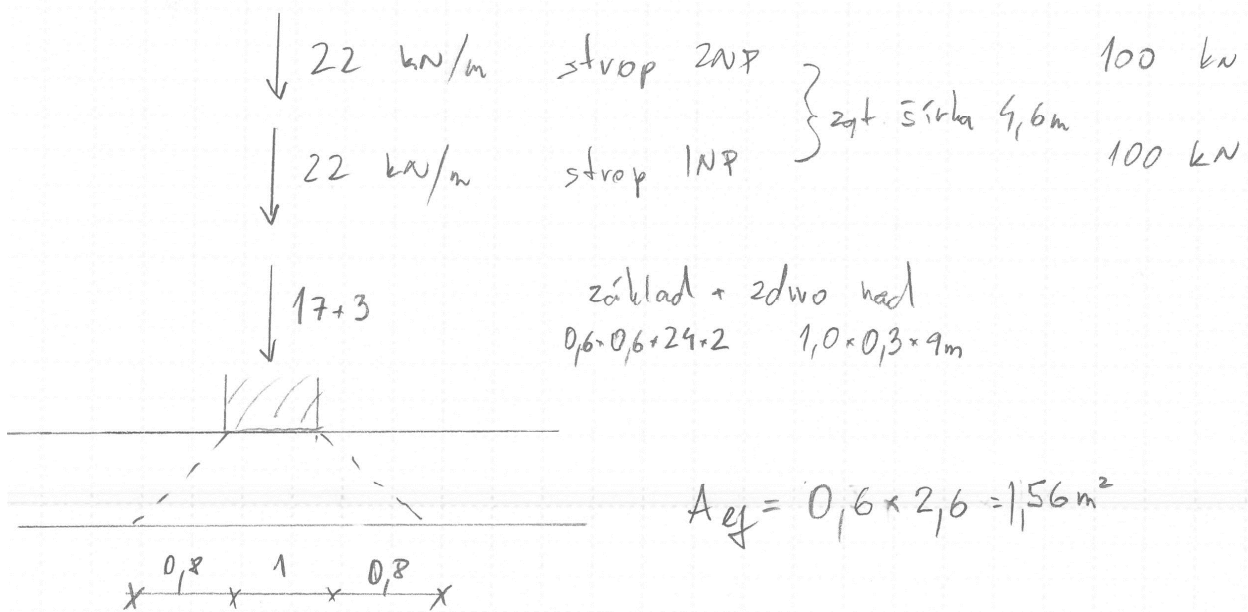 22 kN/m strop 2NP 100 kN
} zat. šířka 4,6m
22 kN/m strop 1NP 100 kN
17+3 základ + zdivo nad
0,6×0,6×24×2 1,0×0,3×9m
A ef = 0,6 × 2,6 = 1,56 m²
0,8 1 0,8